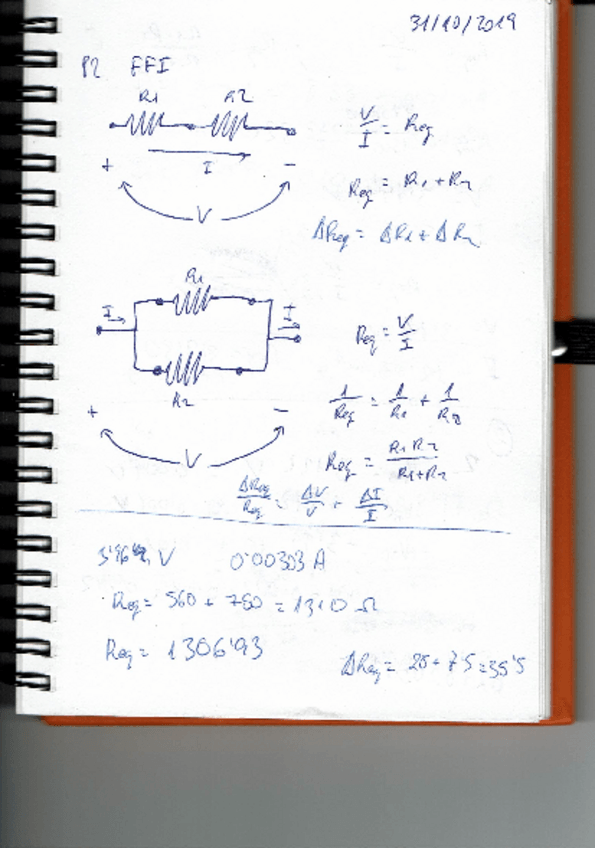 31/10/2019
P2 FFI
R1 R2
V/I = Req
+ I -
Req = R1 + R2
V
ΔReq = ΔR1 + ΔR2
R1
I I
Req = V/I
R2
1/Req = 1/R1 + 1/R2
+ -
V
Req = R1 R2/R1+R2
ΔReq/Req = ΔV/V + ΔI/I
V 0'00303 A
Req = 560 + 750 = 1310 Ω
Req = 1306'93
ΔReq = 28 + 7'5 = 35'5